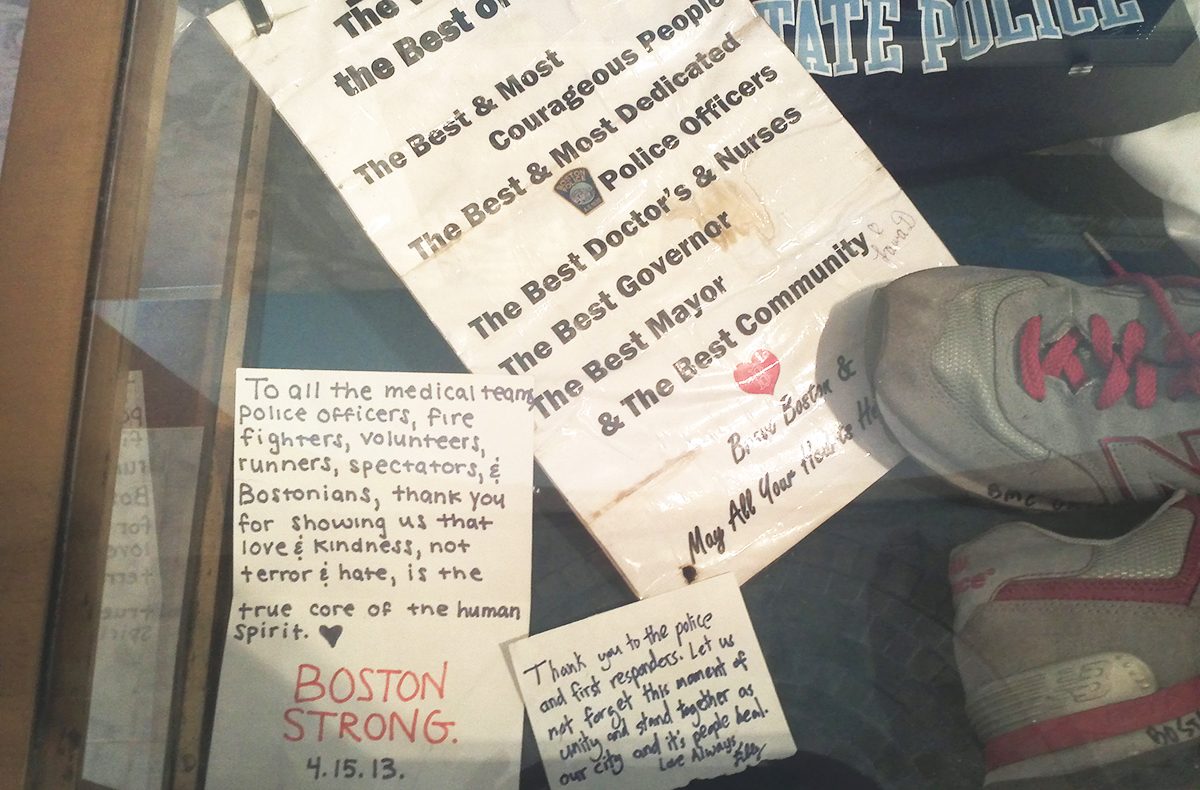 the Best of
The Best & Most
Courageous People
The Best & Most Dedicated
Police Officers
The Best Doctor's & Nurses
The Best Governor
The Best Mayor
& The Best Community
Boston &
May All Your Hearts
TATE POLICE
To all the medical teams
police officers, fire
fighters, volunteers,
runners, spectators, &
Bostonians, thank you
for showing us that
love & kindness, not
terror & hate, is the
true core of the human
spirit. ♥
BOSTON
STRONG.
4.15.13.
Thank you to the police
and first responders. Let us
not forget this moment of
unity and stand together as
our city and it's people heal.
Love Always
BMC